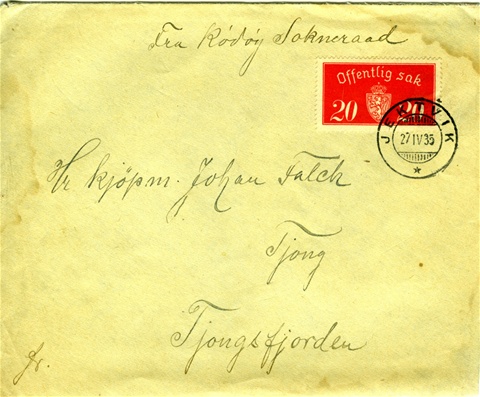 Fra Rödöy Sokneraad
Offentlig sak
20 20
JEKTVIK
27 IV 35
Hr kjöpm. Johan Falch
Tjong
Tjongsfjorden
fr.